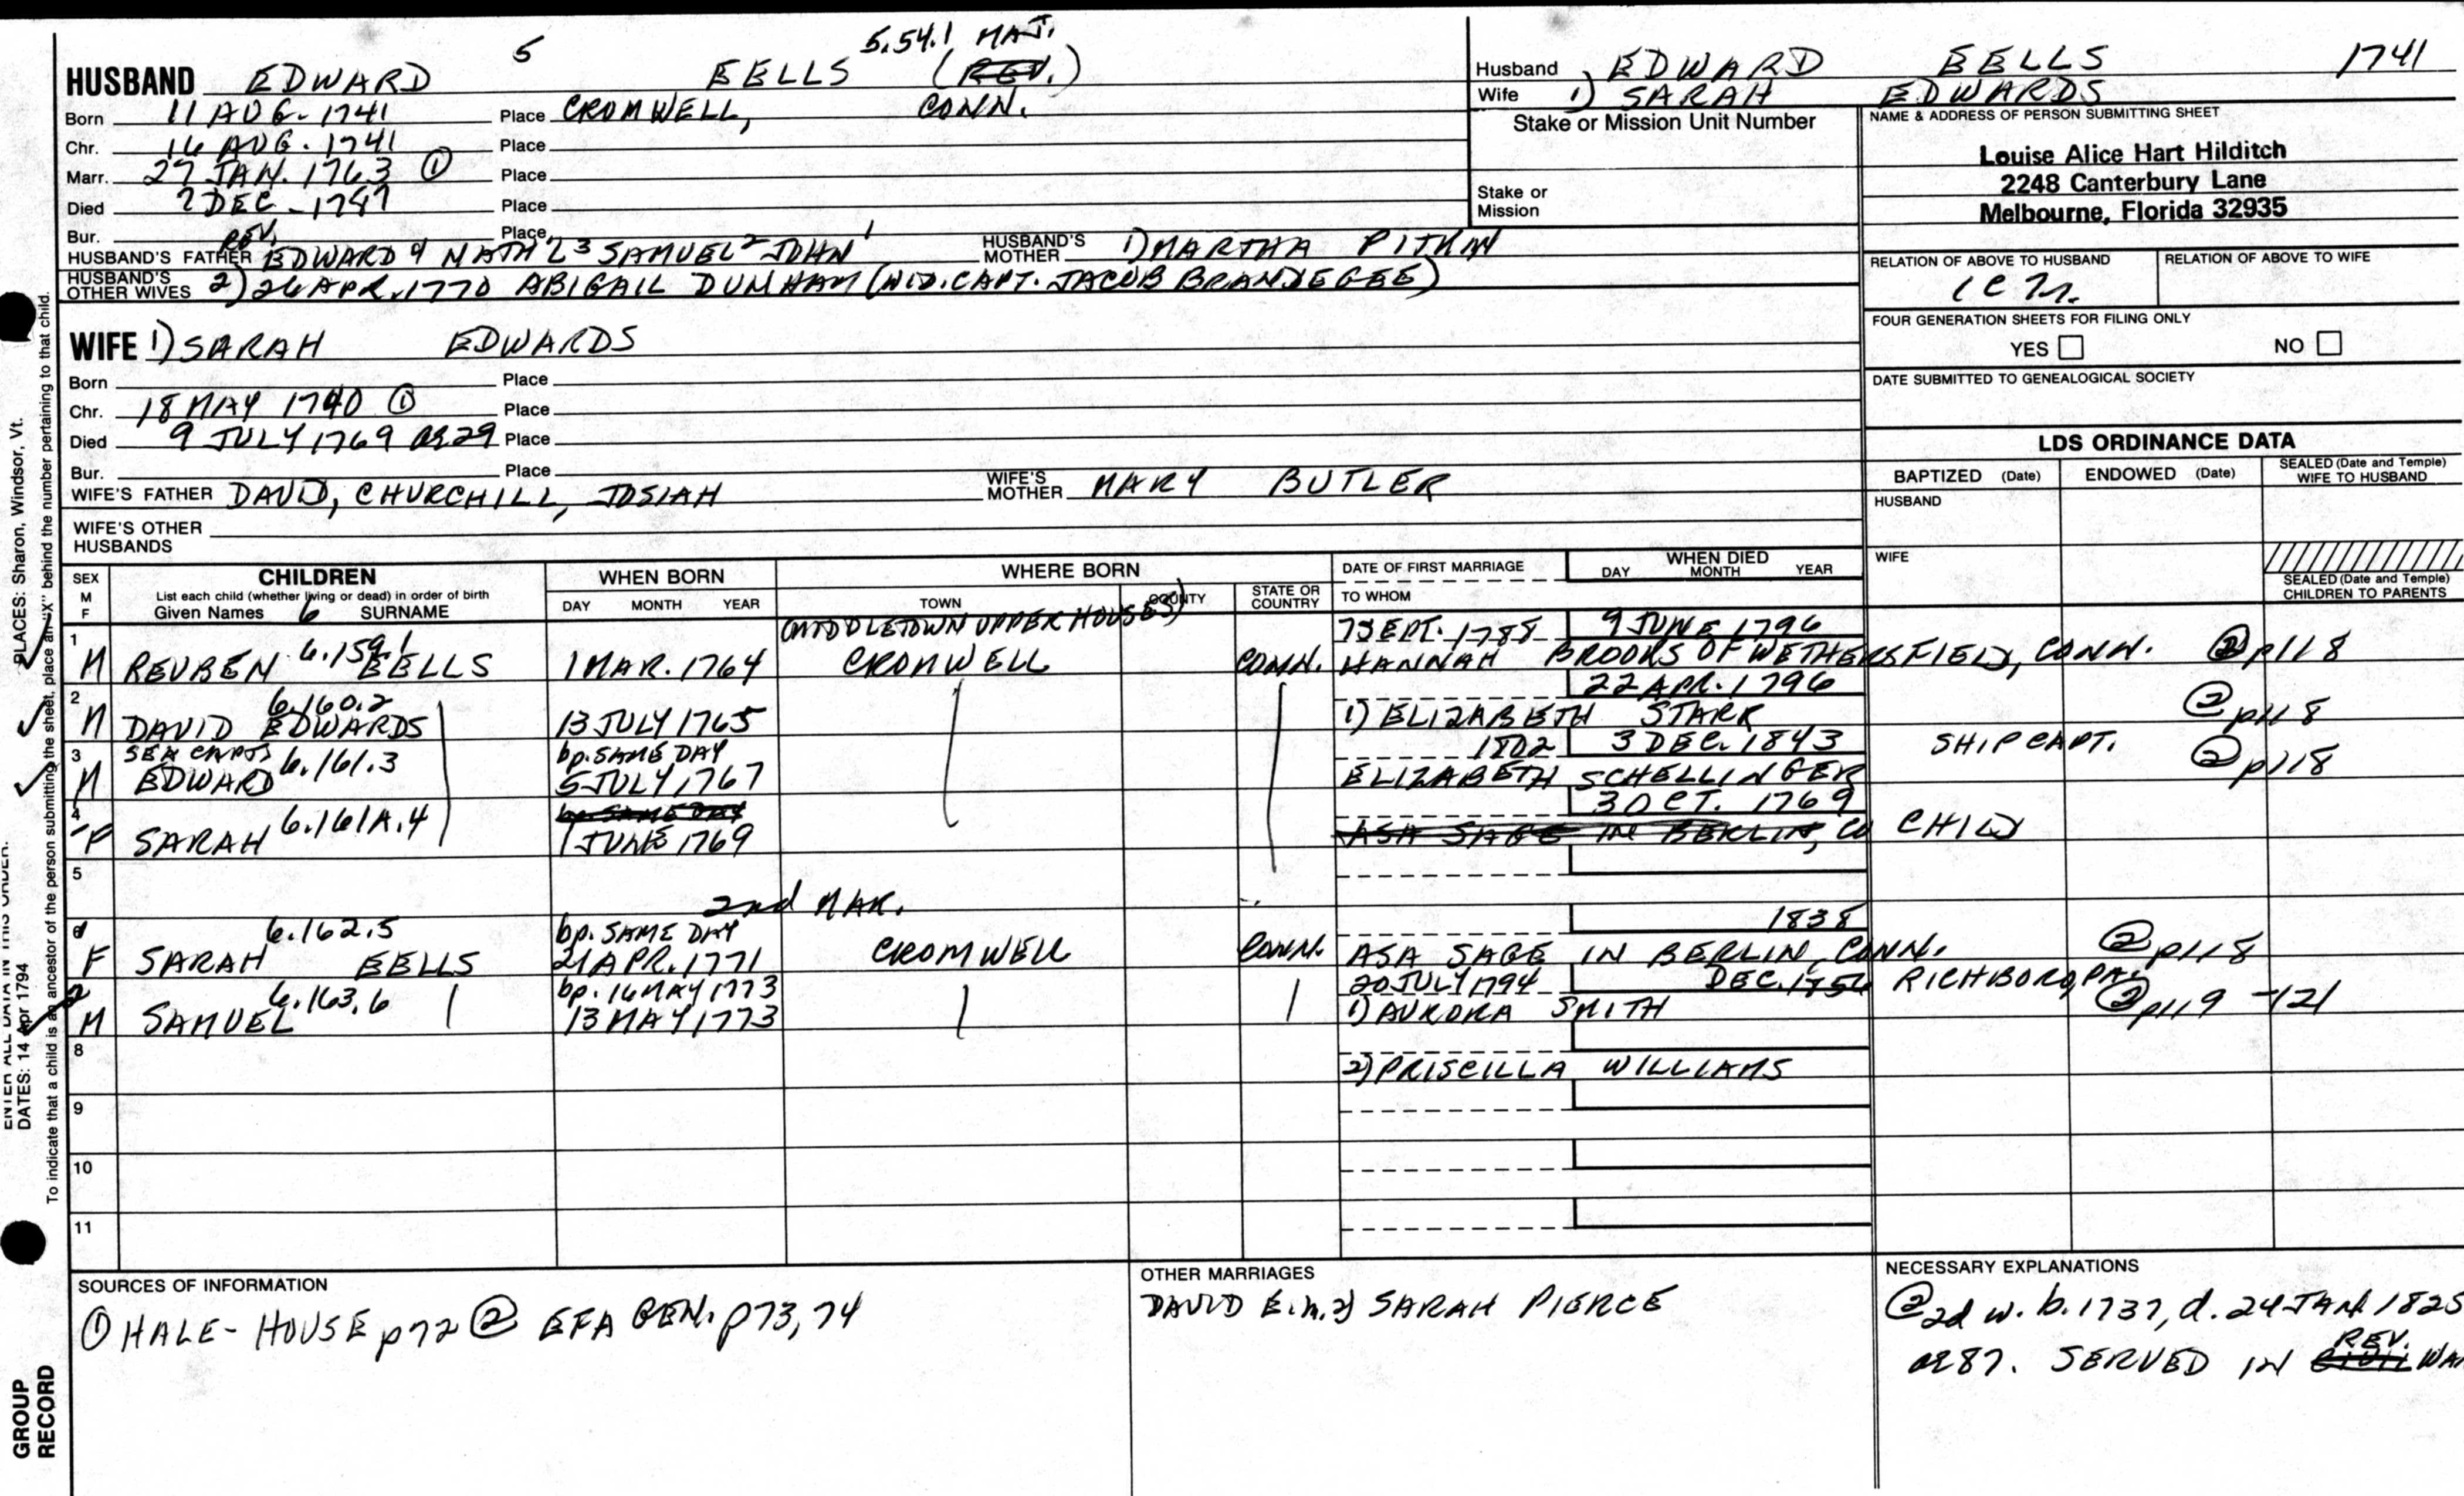 5 5.54.1 MAJ.
HUSBAND EDWARD EELLS (REV.)
Born 11 AUG. 1741 Place CROMWELL, CONN.
Chr. 16 AUG. 1741 Place
Marr. 27 JAN. 1763 ① Place
Died DEC - 1787 Place
Bur. Place
REV.
HUSBAND'S FATHER EDWARD 4 NATH'L 3 SAMUEL 2 JOHN 1 HUSBAND'S MOTHER 1) MARTHA PITKIN
HUSBAND'S OTHER WIVES 2) 26 APR. 1770 ABIGAIL DUNHAM (WID. CAPT. JACOB BRANDEGEE)
Husband EDWARD EELLS 1741
Wife 1) SARAH EDWARDS
Stake or Mission Unit Number
Stake or
Mission
NAME & ADDRESS OF PERSON SUBMITTING SHEET
Louise Alice Hart Hilditch
2248 Canterbury Lane
Melbourne, Florida 32935
RELATION OF ABOVE TO HUSBAND RELATION OF ABOVE TO WIFE
FOUR GENERATION SHEETS FOR FILING ONLY
YES NO
DATE SUBMITTED TO GENEALOGICAL SOCIETY
WIFE 1) SARAH EDWARDS
Born Place
Chr. 18 MAY 1740 ① Place
Died 9 JULY 1769 ae 29 Place
Bur. Place
WIFE'S FATHER DAVID, CHURCHILL, JOSIAH WIFE'S MOTHER MARY BUTLER
WIFE'S OTHER
HUSBANDS
LDS ORDINANCE DATA
BAPTIZED (Date) ENDOWED (Date) SEALED (Date and Temple) WIFE TO HUSBAND
HUSBAND
WIFE
SEALED (Date and Temple)
CHILDREN TO PARENTS
SEX
M
F
CHILDREN
List each child (whether living or dead) in order of birth
Given Names 6 SURNAME
WHEN BORN
DAY MONTH YEAR
WHERE BORN
TOWN COUNTY STATE OR COUNTRY
DATE OF FIRST MARRIAGE
TO WHOM
WHEN DIED
DAY MONTH YEAR
1 6.159.1 (MIDDLETOWN UPPER HOUSES) 7 SEPT. 1788 9 JUNE 1796
M REUBEN EELLS 1 MAR. 1764 CROMWELL CONN. HANNAH BROOKS OF WETHERSFIELD, CONN. @p118
2 6.160.2 22 APR. 1796
M DAVID EDWARDS 13 JULY 1765 1) ELIZABETH STARR @p118
3 SEA CAPT. 6.161.3 bp. SAME DAY 1802 3 DEC. 1843 SHIP CAPT.
M EDWARD 5 JULY 1767 ELIZABETH SCHELLINGER @p118
4 6.161A.4 bp. SAME DAY 3 OCT. 1769
F SARAH 1 JUNE 1769 ASA SAGE IN BERLIN, CO CHILD
5
2nd MAR.
6.162.5 bp. SAME DAY 1838
F SARAH EELLS 21 APR. 1771 CROMWELL CONN. ASA SAGE IN BERLIN, CONN. @p118
6.163.6 bp. 16 MAY 1773 20 JULY 1794 DEC. RICHBORO, PA.
M SAMUEL 13 MAY 1773 1) AURORA SMITH @p119-121
8
2) PRISCILLA WILLIAMS
9
10
11
SOURCES OF INFORMATION
① HALE-HOUSE p72 @ EFA GEN. p73, 74
OTHER MARRIAGES
DAVID E. m. 2) SARAH PIERCE
NECESSARY EXPLANATIONS
@ 2d w. b. 1737, d. 24 JAN 1825
ae 87. SERVED IN CIVIL REV. WAR
PLACES: Sharon, Windsor, Vt.
To indicate that a child is an ancestor of the person submitting the sheet, place an "X" behind the number pertaining to that child.
ENTER ALL DATA IN THIS ORDER:
DATES: 14 Apr 1794
GROUP
RECORD